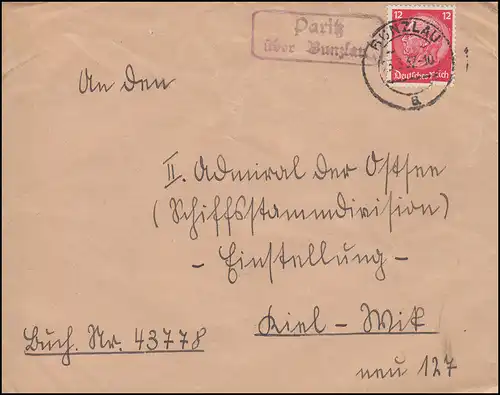 Paritz
über Bunzlau
12 12
Deutsches Reich
BUNZLAU
a
An den
II. Admiral der Ostsee
(Schiffsstammdivision)
- Einstellung -
Kiel - Wik
Buch. Nr. 43778
neu 127